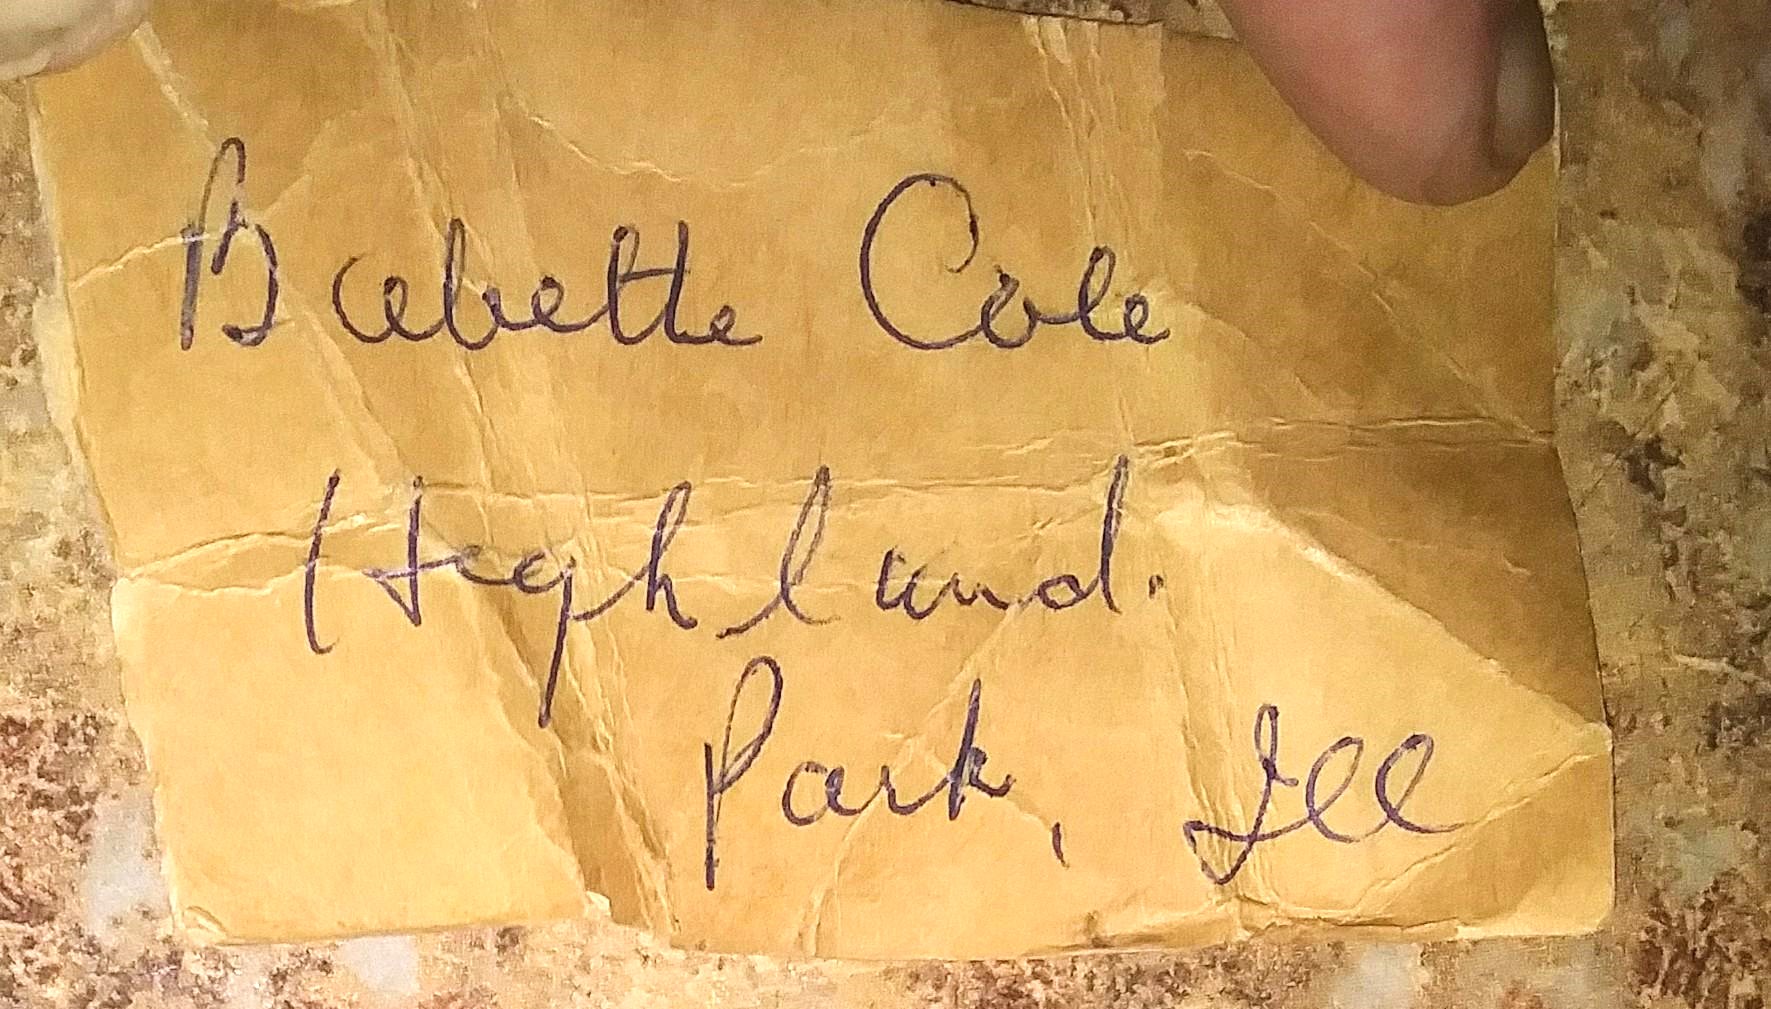 Babette Cole
Highland.
Park, Ill